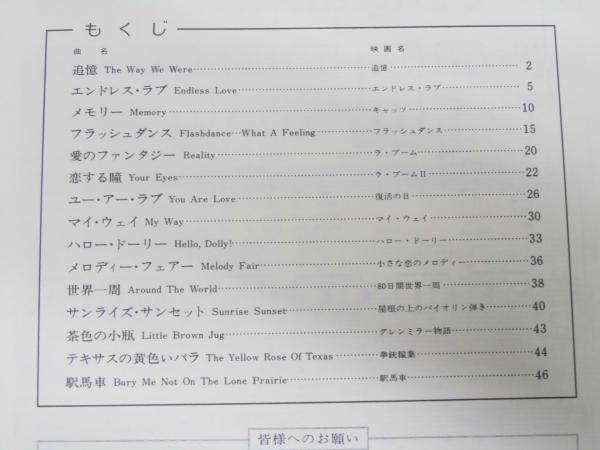 もくじ
曲 名 映画名
追憶 The Way We Were 追憶 2
エンドレス・ラブ Endless Love エンドレス・ラブ 5
メモリー Memory キャッツ 10
フラッシュダンス Flashdance…What A Feeling フラッシュダンス 15
愛のファンタジー Reality ラ・ブーム 20
恋する瞳 Your Eyes ラ・ブームII 22
ユー・アー・ラブ You Are Love 復活の日 26
マイ・ウェイ My Way マイ・ウェイ 30
ハロー・ドーリー Hello, Dolly! ハロー・ドーリー 33
メロディー・フェアー Melody Fair 小さな恋のメロディー 36
世界一周 Around The World 80日間世界一周 38
サンライズ・サンセット Sunrise Sunset 屋根の上のバイオリン弾き 40
茶色の小瓶 Little Brown Jug グレンミラー物語 43
テキサスの黄色いバラ The Yellow Rose Of Texas 拳銃稼業 44
駅馬車 Bury Me Not On The Lone Prairie 駅馬車 46
皆様へのお願い